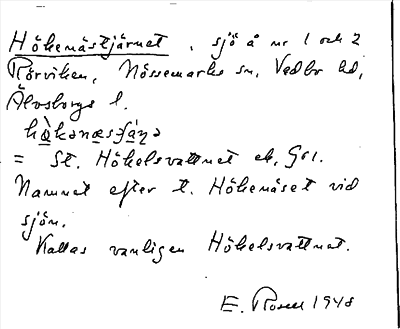 Hökenästjärnet, sjö å nr 1 och 2
Rörviken, Nössemarks sn, Vedbo hd,
Älvsborgs l.
= St. Hökelsvattnet ek, G61.
Namnet efter t. Hökenäset vid
sjön.
Kallas vanligen Hökelsvattnet.
E. Rosell 1948